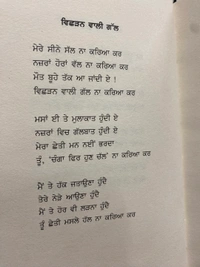 ਵਿਛੜਨ ਵਾਲੀ ਗੱਲ
ਮੇਰੇ ਸੀਨੇ ਸੱਲ ਨਾ ਕਰਿਆ ਕਰ
ਨਜ਼ਰਾਂ ਹੋਰਾਂ ਵੱਲ ਨਾ ਕਰਿਆ ਕਰ
ਮੌਤ ਬੂਹੇ ਤੱਕ ਆ ਜਾਂਦੀ ਏ !
ਵਿਛੜਨ ਵਾਲੀ ਗੱਲ ਨਾ ਕਰਿਆ ਕਰ
ਮਸਾਂ ਈ ਤੇ ਮੁਲਾਕਾਤ ਹੁੰਦੀ ਏ
ਨਜ਼ਰਾਂ ਵਿਚ ਗੱਲਬਾਤ ਹੁੰਦੀ ਏ
ਮੇਰਾ ਛੇਤੀ ਮਨ ਨਈਂ ਭਰਦਾ
ਤੂੰ, 'ਚੰਗਾ ਫਿਰ ਹੁਣ ਚੱਲ' ਨਾ ਕਰਿਆ ਕਰ
ਮੈਂ ਤੇ ਹੱਕ ਜਤਾਉਣਾ ਹੁੰਦੈ
ਤੇਰੇ ਨੇੜੇ ਆਉਣਾ ਹੁੰਦੈ
ਮੈਂ ਤੇ ਹੋਰ ਵੀ ਲੜਨਾ ਹੁੰਦੈ
ਤੂੰ ਛੇਤੀ ਮਸਲੇ ਹੱਲ ਨਾ ਕਰਿਆ ਕਰ